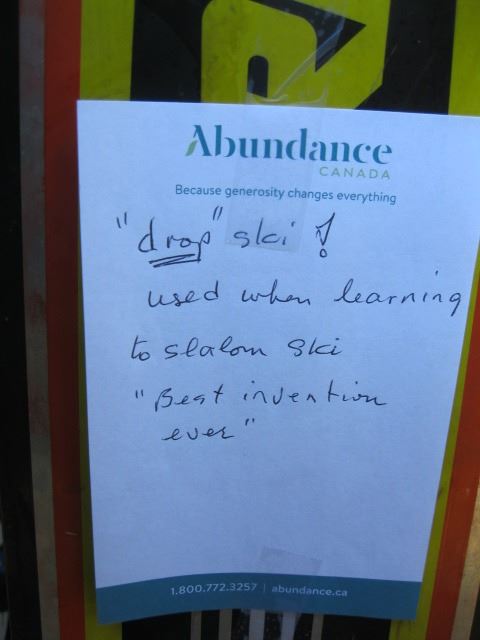 Abundance
CANADA
Because generosity changes everything
"drop" ski!
used when learning
to slalom ski
"Best invention
ever"
1.800.772.3257 | abundance.ca